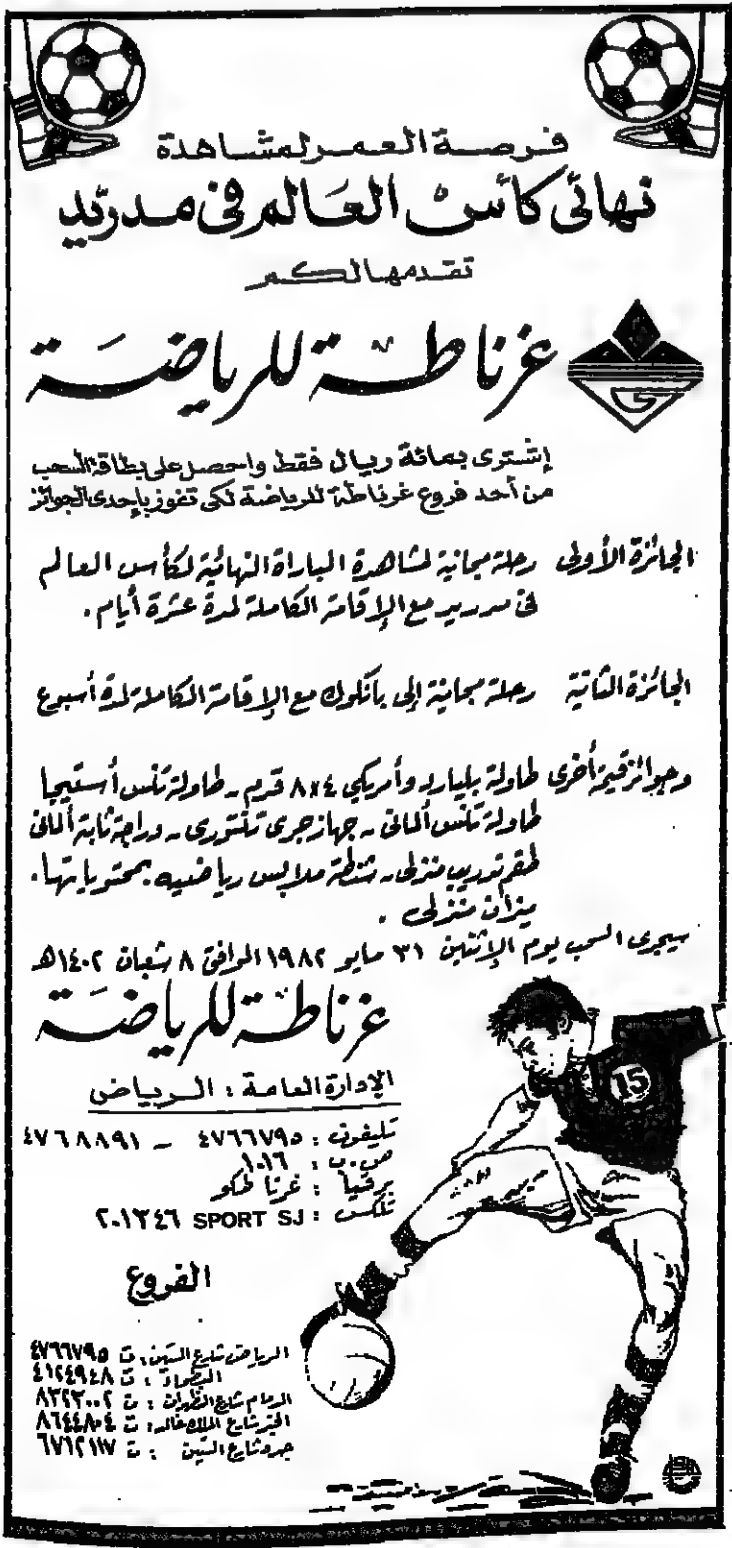 فرصة العمر لمشاهدة
نهائي كأس العالم في مدريد
تقدمها لكم
غرناطة للرياضة
إشترى بمائة ريال فقط واحصل على بطاقة السحب
من أحد فروع غرناطة للرياضة لكى تفوز بإحدى الجوائز
الجائزة الأولى رحلة مجانية لمشاهدة المباراة النهائية لكأس العالم
فى مدريد مع الإقامة الكاملة لمدة عشرة أيام.
الجائزة الثانية رحلة مجانية إلى بانكوك مع الإقامة الكاملة لمدة أسبوع
وجوائز قيمة أخرى طاولة بلياردو أمريكي ٤×٨ قدم - طاولة تنس أستيجا
طاولة تنس ألمانى - جهاز جرى تنتورى - دراجة ثابتة ألمانى
طقم تدريب منزلى - شنطة ملابس رياضيه بمحتوياتها.
ميزان منزلى.
سيجرى السحب يوم الإثنين ٣١ مايو ١٩٨٢ الموافق ٨ شعبان ١٤٠٢هـ
غرناطة للرياضة
15
الإدارة العامة : الرياض
تليفون : ٤٧٦٦٧٩٥ - ٤٧٦٨٨٩١
ص.ب : ١٠١٦
برقيا : غرناطكو
تلكس : SPORT SJ ٢٠١٣٤٦
الفروع
الرياض شارع الستين : ت ٤٧٦٦٧٩٥
البطحاء : ت ٤١٢٤٩٤٨
الدمام شارع الظهران : ت ٨٣٢٣٠٠٢
الخبر شارع الملك خالد : ت ٨٦٤٤٨٠٤
جده شارع الستين : ت ٦٧١٢١١٧